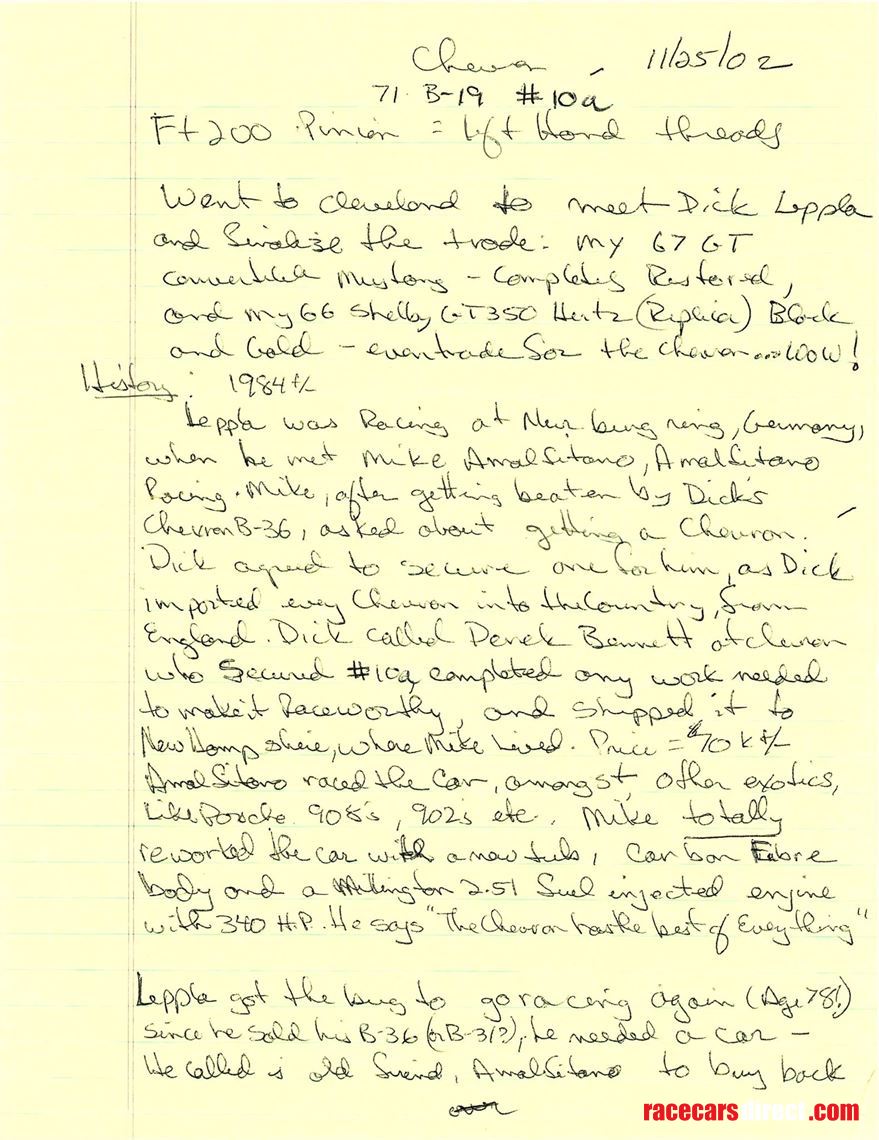 Chevron 11/25/02
71 B-19 #10a
Ft 200 Pinion = left Hand threads
Went to Cleveland to meet Dick Leppla
and finalize the trade: my 67 GT
convertible Mustang - Completely Restored,
and my 66 Shelby GT350 Hertz (Replica) Black
and Gold - even trade for the Chevron... WOW!
History: 1984 +/-
Leppla was Racing at Neurburg ring, Germany,
when he met Mike Amalfitano, Amalfitano
Racing. Mike, after getting beaten by Dick's
Chevron B-36, asked about getting a Chevron.
Dick agreed to secure one for him, as Dick
imported every Chevron into the Country, from
England. Dick called Derek Bennett at Chevron
who secured #10a, completed any work needed
to make it Raceworthy, and shipped it to
New Hampshire, where Mike lived. Price = $70K +/-
Amalfitano raced the Car, amongst other exotics,
Like Porsche 908's, 902's etc. Mike totally
reworked the car with a new tub, Carbon Fibre
body and a Millington 2.5l fuel injected engine
with 340 H.P. He says "The Chevron has the best of Everything"
Leppla got the bug to go racing again (Age 78!)
Since he sold his B-36 (or B-31?), he needed a car -
He called is old friend, Amalfitano to buy back
over
racecarsdirect.com